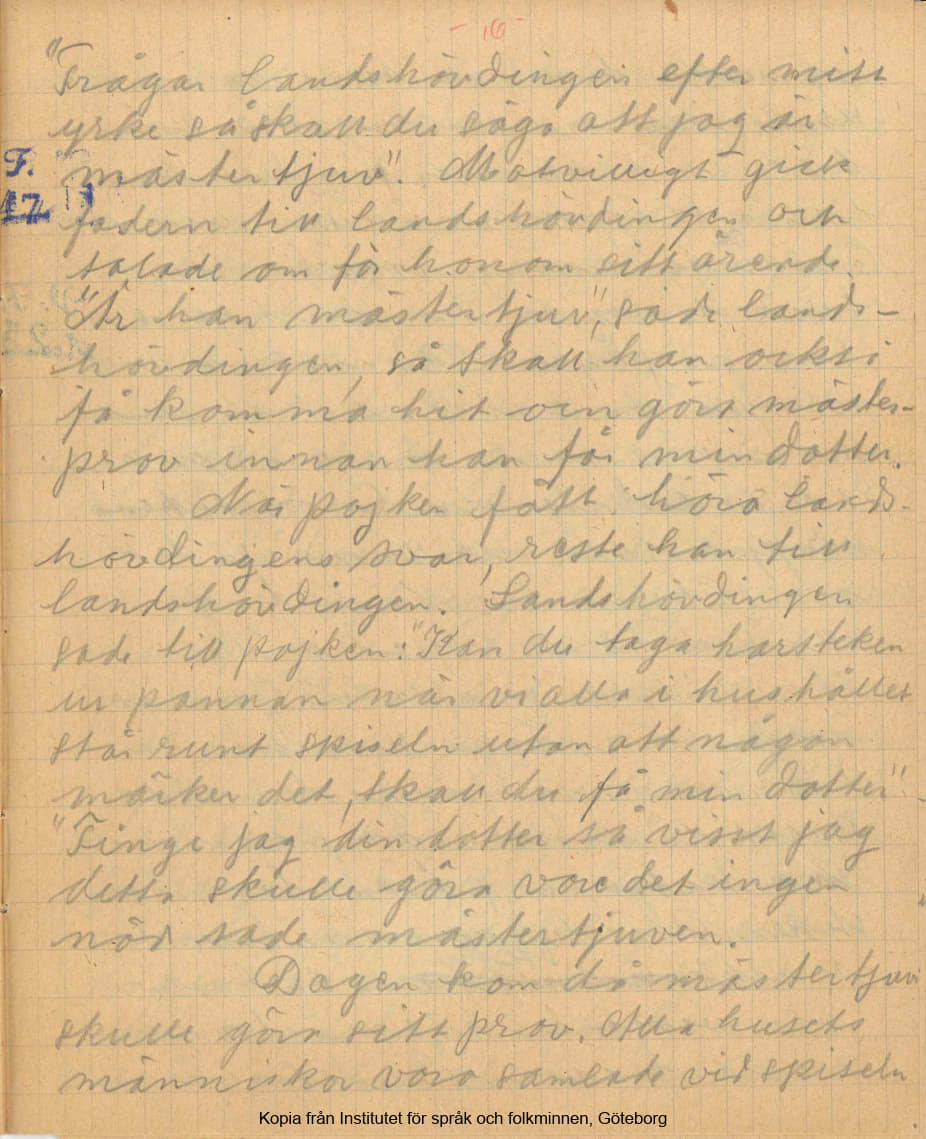 - 16 -
"Frågar landshövdingen efter mitt
yrke så skall du säga att jag är
mästertjuv". Motvilligt gick
F.
17
fadern till landshövdingen och
talade om för honom sitt ärende.
"Är han mästertjuv", sade lands-
hövdingen, så skall han också
få komma hit och göra mäster-
prov innan han får min dotter.
När pojken fått höra lands-
hövdingens svar, reste han till
landshövdingen. Landshövdingen
sade till pojken: "Kan du taga harsteken
ur pannan när vi alla i hushållet
står runt spiseln utan att någon
märker det, skall du få min dotter"
"Finge jag din dotter så visst jag
detta skulle göra vore det ingen
nöd sade mästertjuven.
Dagen kom då mästertjuv
skulle göra sitt prov. Alla husets
människor voro samlade vid spiseln
Kopia från Institutet för språk och folkminnen, Göteborg